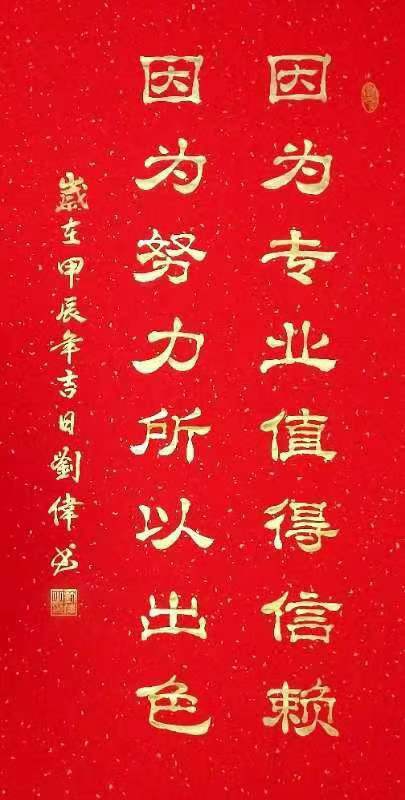 因为专业值得信赖
因为努力所以出色
歲在甲辰年吉日劉偉书